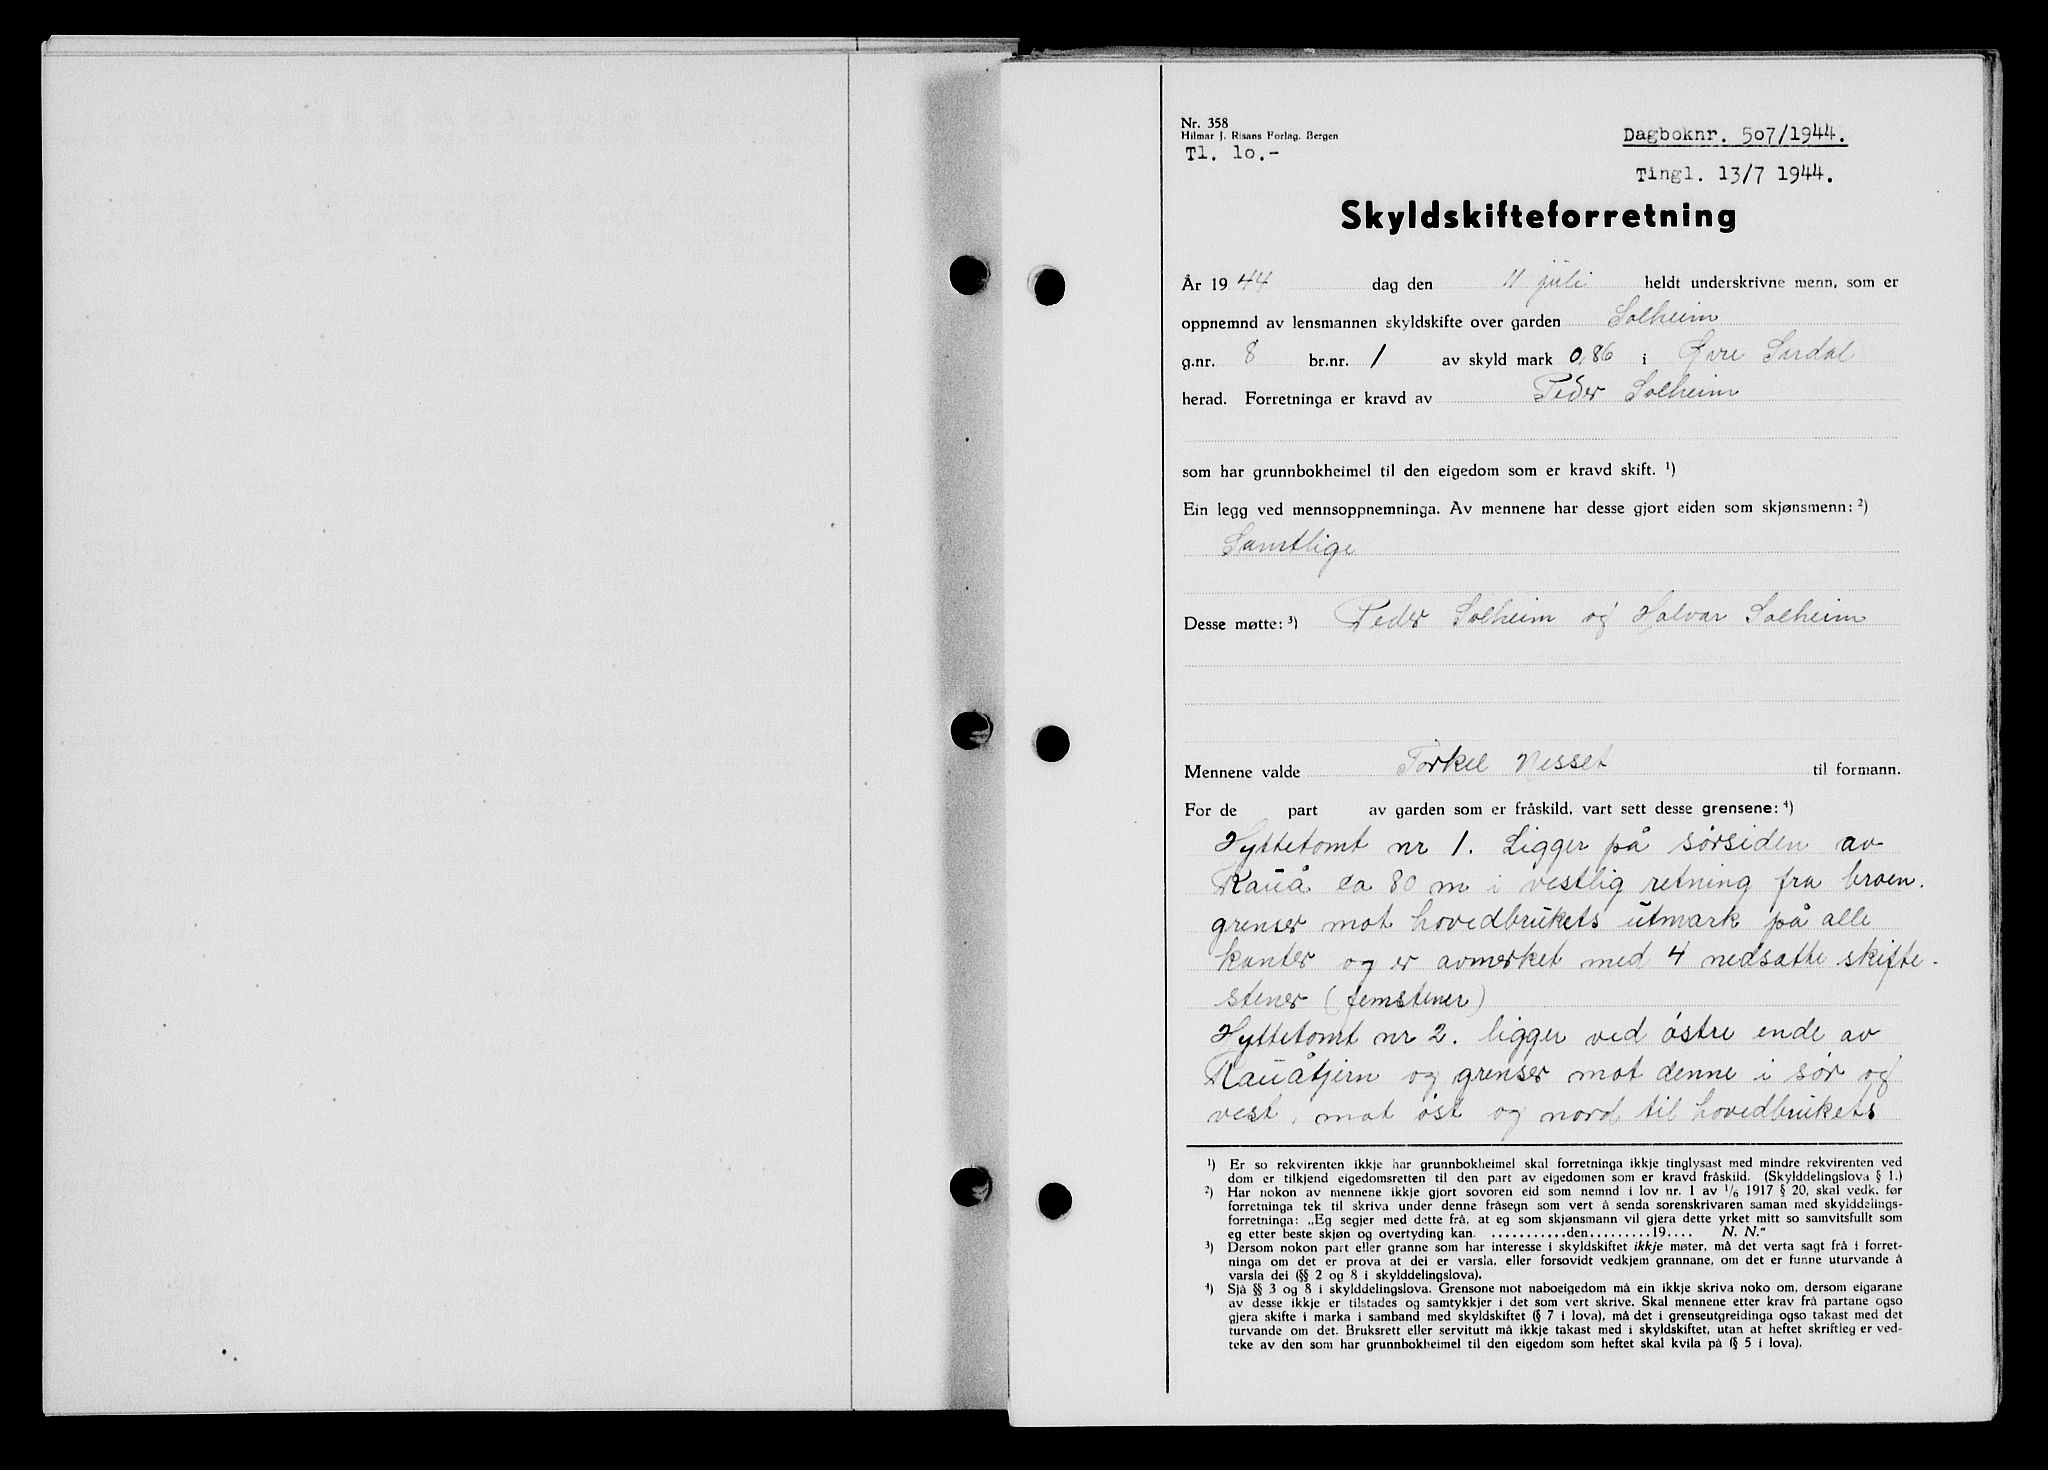 Nr. 358
Hilmar J. Risans Forlag, Bergen
Tl. 10.-
Dagboknr. 507/1944.
Tingl. 13/7 1944.
Skyldskifteforretning
År 1944 dag den 11 juli heldt underskrivne menn, som er
oppnemnd av lensmannen skyldskifte over garden Solheim
g.nr. 8 br.nr. 1 av skyld mark 0,86 i Øvre Sirdal
herad. Forretninga er kravd av Peder Solheim
som har grunnbokheimel til den eigedom som er kravd skift. ¹)
Ein legg ved mennsoppnemninga. Av mennene har desse gjort eiden som skjønsmenn: ²)
Samtlige
Desse møtte: ³) Peder Solheim og Halvar Solheim
Mennene valde Torkel Nesset til formann.
For de part av garden som er fråskild, vart sett desse grensene: ⁴)
Hyttetomt nr 1. Ligger på sørsiden av
Rauå ca 80 m i vestlig retning fra broen.
grenser mot hovedbrukets utmark på alle
kanter og er avmerket med 4 nedsatte skifte-
stener (femstener)
Hyttetomt nr 2. ligger ved østre ende av
Rauåtjern og grenser mot denne i sør og
vest, mot øst og nord til hovedbrukets
¹) Er so rekvirenten ikkje har grunnbokheimel skal forretninga ikkje tinglysast med mindre rekvirenten ved
dom er tilkjend eigedomsretten til den part av eigedomen som er kravd fråskild. (Skylddelingslova § 1.)
²) Har nokon av mennene ikkje gjort sovoren eid som nemnd i lov nr. 1 av 1/6 1917 § 20, skal vedk. før
forretninga tek til skriva under denne fråsegn som vert å senda sorenskrivaren saman med skylddelings-
forretninga: „Eg segjer med dette frå, at eg som skjønsmann vil gjera dette yrket mitt so samvitsfullt som
eg etter beste skjøn og overtyding kan. ............den..........19.... N. N."
³) Dersom nokon part eller granne som har interesse i skyldskiftet ikkje møter, må det verta sagt frå i forret-
ninga om det er prova at dei er varsla, eller forsovidt vedkjem grannane, om det er funne uturvande å
varsla dei (§§ 2 og 8 i skylddelingslova).
⁴) Sjå §§ 3 og 8 i skylddelingslova. Grensone mot naboeigedom må ein ikkje skriva noko om, dersom eigarane
av desse ikkje er tilstades og samtykkjer i det som vert skrive. Skal mennene etter krav frå partane også
gjera skifte i marka i samband med skyldskiftet (§ 7 i lova), må det i grenseutgreidinga også takast med det
turvande om det. Bruksrett eller servitutt må ikkje takast med i skyldskiftet, utan at heftet skriftleg er ved-
teke av den som har grunnbokheimel til den eigedom som heftet skal kvila på (§ 5 i lova).